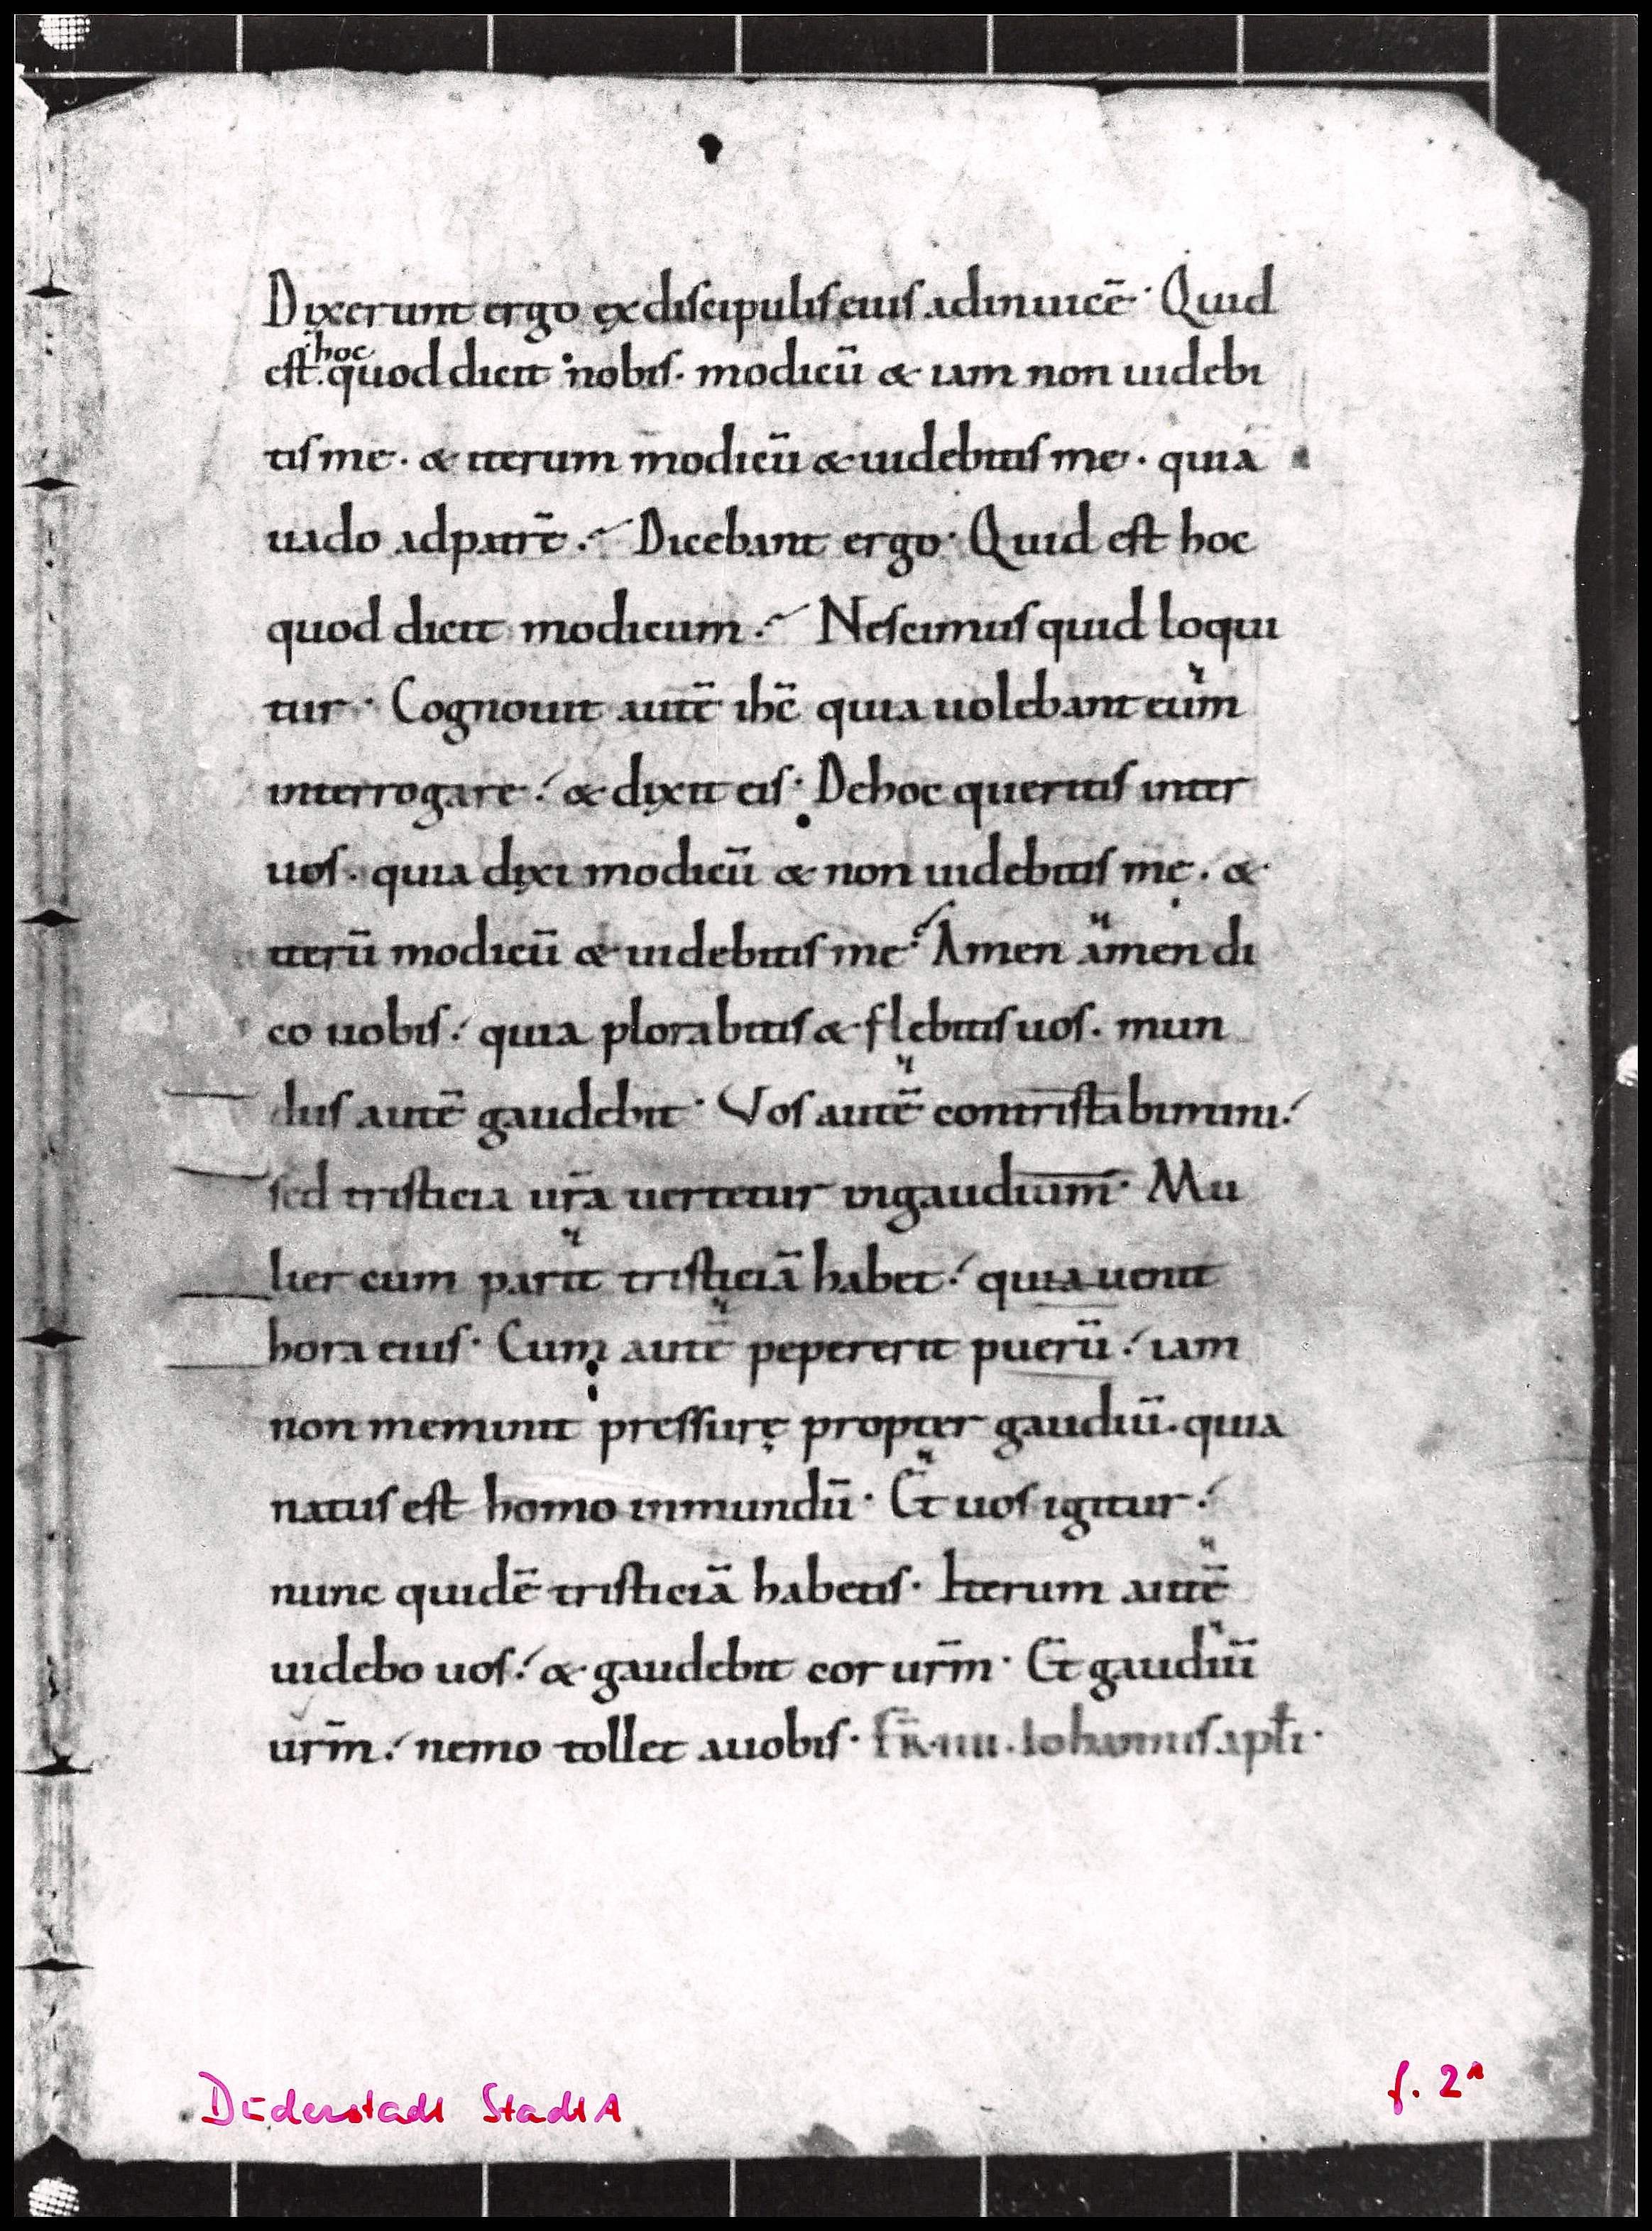 Dixerunt ergo ex discipulis eius adinuicē· Quid
hoc
est quod dicit nobis· modicū & iam non uidebi
tis me· & iterum modicū & uidebitis me· quia
uado adpatrē· Dicebant ergo· Quid est hoc
quod dicit modicum· Nescimus quid loqui
tur· Cognouit autē ihc̄ quia uolebant eum
interrogare· & dixit eis· Dehoc queritis inter
uos· quia dixi modicū & non uidebitis me· &
iterū modicū & uidebitis me· Amen amen di
co uobis· quia plorabitis & flebitis uos· mun
dus autē gaudebit· Vos autē contristabimini·
sed tristicia ur̄a uertetur ingaudium· Mu
lier cum parit tristiciā habet· quia uenit
hora eius· Cum autē pepererit puerū· iam
non meminit pressurę propter gaudiū· quia
natus est homo inmundū· Et uos igitur·
nunc quidē tristiciā habetis· Iterum autē
uidebo uos· & gaudebit cor ur̄m· Et gaudiū
ur̄m· nemo tollet auobis· Iohannis apłi·
Duderstadt StadtA
f. 2ʳ